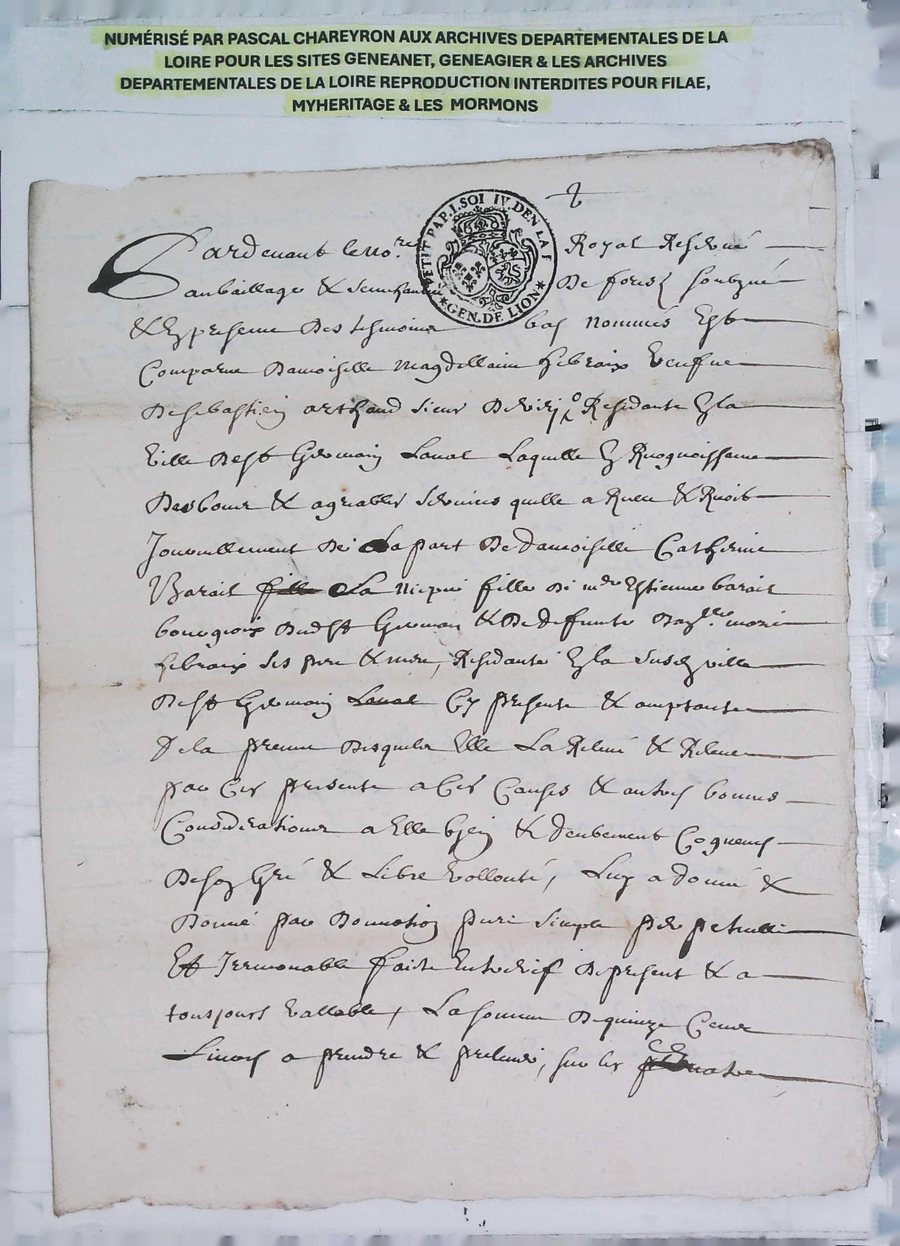 NUMÉRISÉ PAR PASCAL CHAREYRON AUX ARCHIVES DEPARTEMENTALES DE LA
LOIRE POUR LES SITES GENEANET, GENEAGIER & LES ARCHIVES
DEPARTEMENTALES DE LA LOIRE REPRODUCTION INTERDITES POUR FILAE,
MYHERITAGE & LES MORMONS
PETIT PAP. I. SOI IV. DEN LA F
GEN. DE LION
Pardevant le No.re Royal Reservé
au baillage & de forestz soubzné
& En presence des tesmoins bas nommés Est
Comparue Damoiselle Magdellaine hebraix veufve
De sebastien arthaud sieur De viri Residante En la
ville De St Germain Laval Laquelle En Recognoissance
Des bons & agreables services quelle a Receu & Reçoit
Journellement De La part De Damoiselle Catherine
Barait fille La niepce fille De me Estienne barait
bourgeois Dud St Germain & De deffunte Dam.lle marie
hebraix ses pere & mere, Residante En la susd ville
De St Germain Laval Cy presente & acceptante
De la preuve Desquels Elle La Relevé & Releve
par Ces presente a Ces Causes & autres bonnes
Considerations a Elle bien & deubement Cogneues
De son Gré & Libre vollonté, Luy a donné &
Donne par Donnation pure simple perpetuelle
Et Irrevocable faite Entre vif De present & a
tousjours vallable, La somme De quinze Cens
Livres a prendre & prelever, sur les